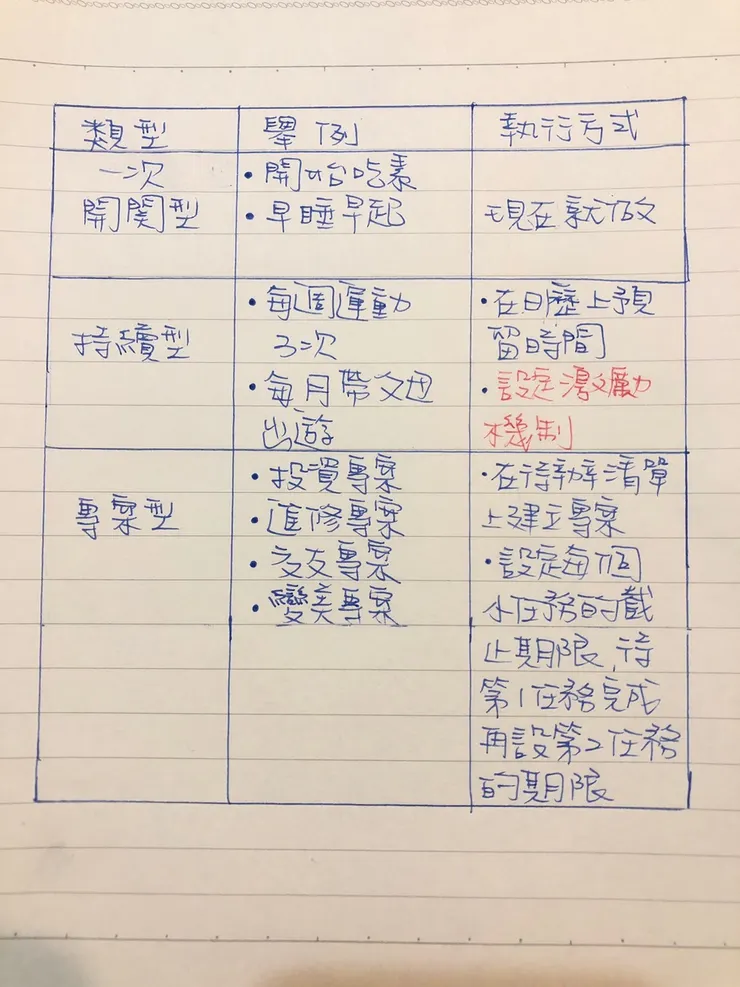 類型
舉例
執行方式
一次
開關型
• 開始吃素
• 早睡早起
現在就做
持續型
• 每週運動
3次
• 每月帶父母
出遊
• 在日曆上預
留時間
• 設定激勵
機制
專案型
• 投資專案
• 進修專案
• 交友專案
• 變美專案
• 在待辦清單
上建立專案
• 設定每個
小任務的截
止期限,待
第1任務完成
再設第2任務
的期限